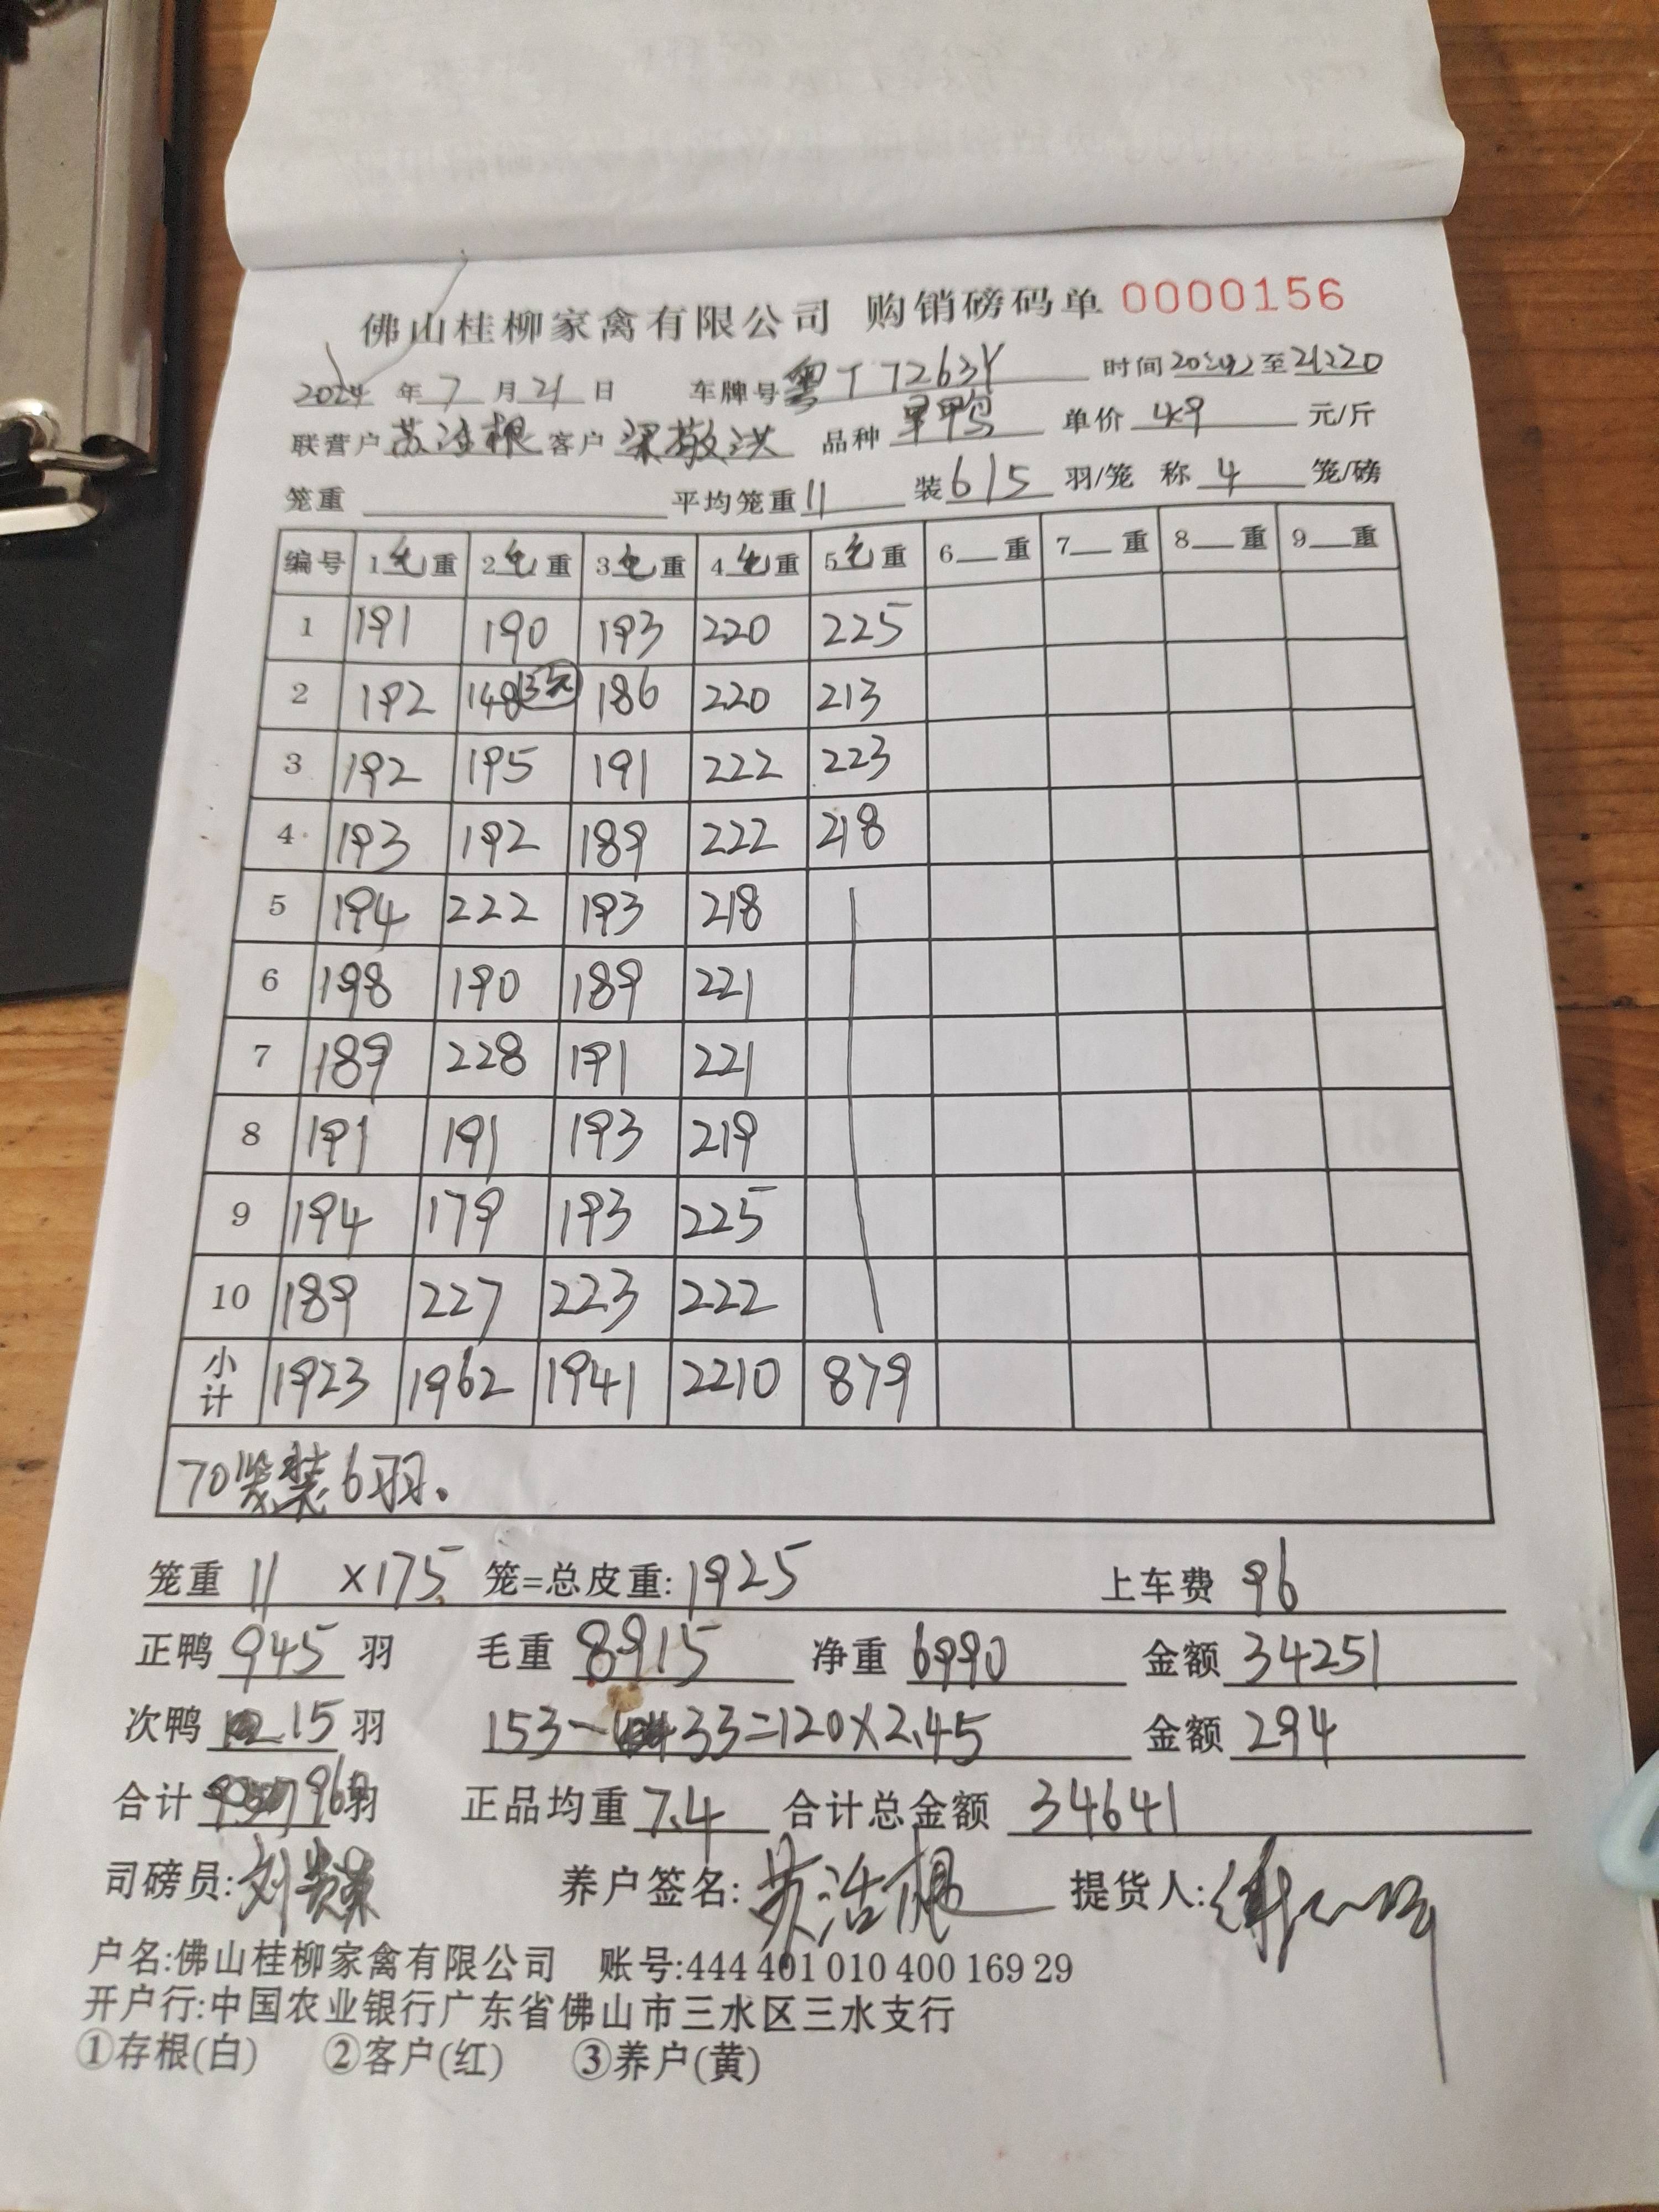 佛山桂柳家禽有限公司 购销磅码单 0000156
2024 年 7 月 21 日 车牌号 粤T7263Y 时间 至 21:20
联营户 苏浩根 客户 梁敬洪 品种 单价 4.9 元/斤
笼重 平均笼重 11 装 6/5 羽/笼 称 4 笼/磅
编号 1毛重 2毛重 3毛重 4毛重 5毛重 6 重 7 重 8 重 9 重
1 191 190 193 220 225
2 192 148 186 220 213
3 192 195 191 222 223
4 193 192 189 222 218
5 194 222 193 218
6 198 190 189 221
7 189 228 191 221
8 191 191 193 219
9 194 179 193 225
10 189 227 223 222
小计 1923 1962 1941 2210 879
70笼装6羽.
笼重 11 ×175 笼=总皮重: 1925 上车费 96
正鸭 945 羽 毛重 8915 净重 6990 金额 34251
次鸭 15 羽 153- 33=120×2.45 金额 294
合计 960 羽 正品均重 7.4 合计总金额 34641
司磅员: 刘 养户签名: 苏浩根 提货人:
户名:佛山桂柳家禽有限公司 账号:444 401 010 400 169 29
开户行:中国农业银行广东省佛山市三水区三水支行
①存根(白) ②客户(红) ③养户(黄)